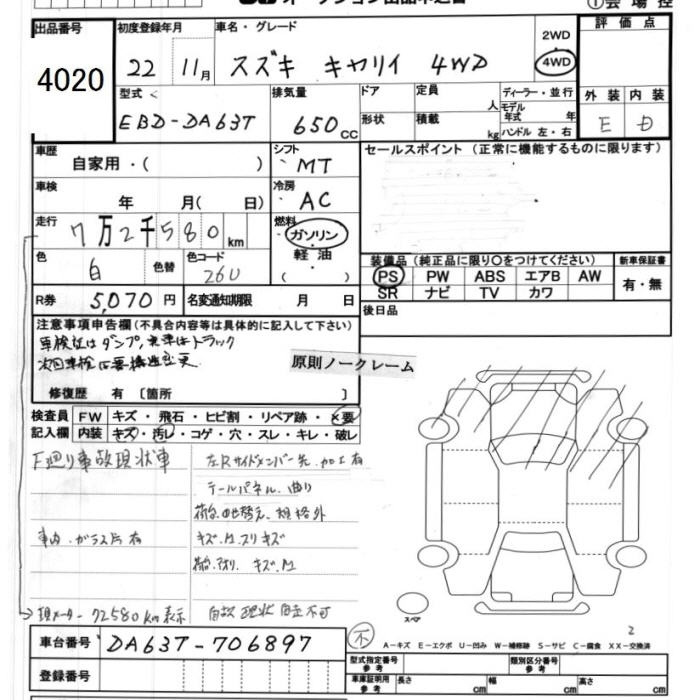 出品番号 初度登録年月 車名・グレード 評価点
4020 22 11月 スズキ キャリイ 4WD 2WD 4WD
型式 排気量 ドア 定員 人 ディーラー・並行 外装 内装
EBD-DA63T 650cc 形状 積載 kg モデル年式 年 ハンドル 左・右 E D
車歴 自家用・( ) シフト MT セールスポイント (正常に機能するものに限ります)
車検 年 月( 日) 冷房 AC
走行 7万2千580km 燃料 ガソリン 軽油 ( )
色 白 色替 色コード 26U
装備品 (純正品に限り○をつけてください) 新車保証書
PS PW ABS エアB AW 有・無
SR ナビ TV カワ
R券 5,070円 名変通知期限 月 日 後日品
注意事項申告欄 (不具合内容等は具体的に記入して下さい)
車検証はダンプ,現車はトラック
次回車検は要構造変更
原則ノークレーム
修復歴 有〔箇所 〕
検査員 FW キズ・飛石・ヒビ割・リペア跡・×要
記入欄 内装 キズ・汚レ・コゲ・穴・スレ・キレ・破レ
下廻り事故現状車 左Rサイドメンバー先 加工有
テールパネル 曲り
車内 ガラス片有 キズ.M.スリキズ
キズ.M
現メーター72580km表示 自走不可
スペア
車台番号 DA63T-706897 不
A−キズ E−エクボ U−凹み W−補修跡 S−サビ C−腐食 XX−交換済
登録番号 型式指定番号 参考 類別区分番号 参考
車庫証明用 参考 長さ cm 幅 cm 高さ cm